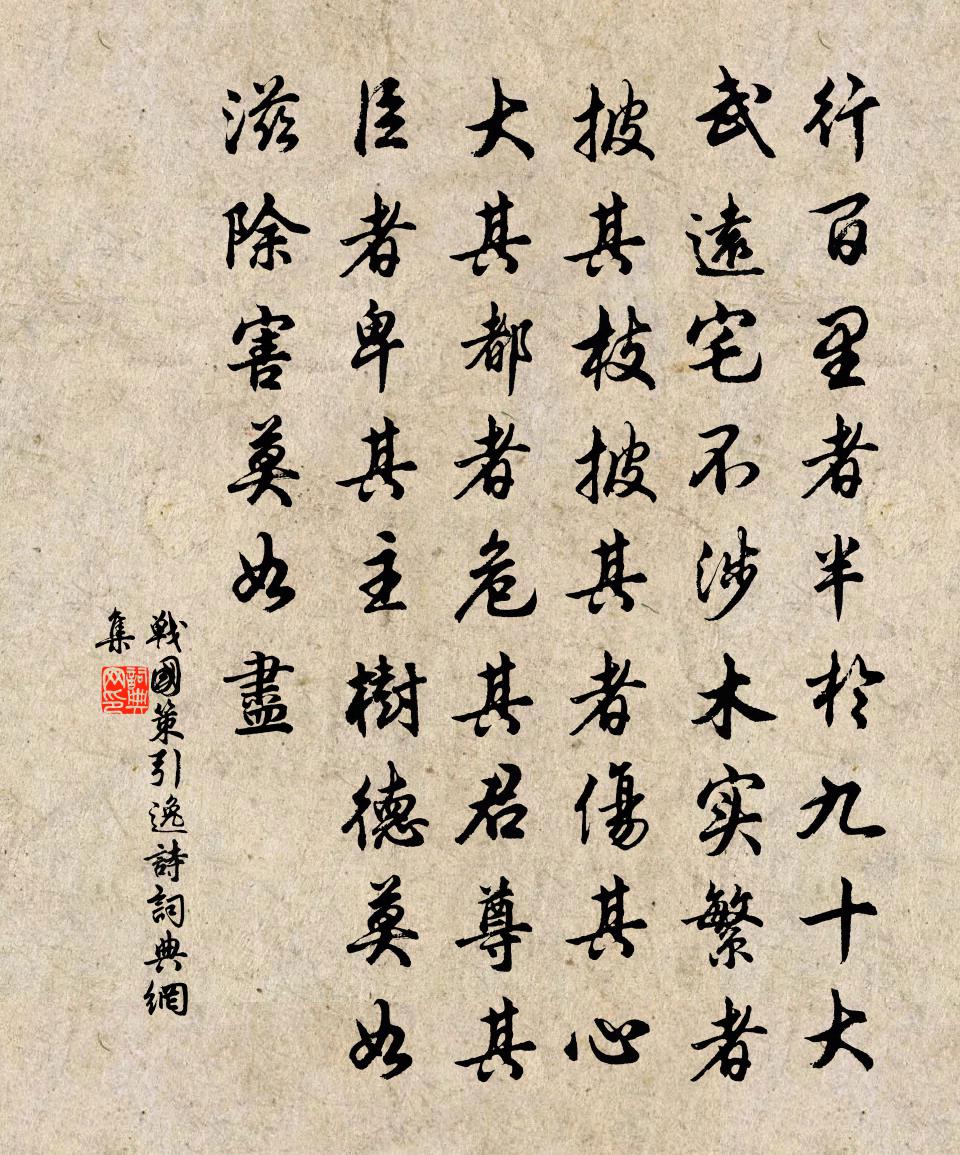 行百里者半於九十大
武遠宅不涉木实繁者
披其枝披其者傷其心
大其都者危其君尊其
臣者卑其主樹德莫如
滋除害莫如盡
戰國策引逸詩詞典網
集
詞典
网印